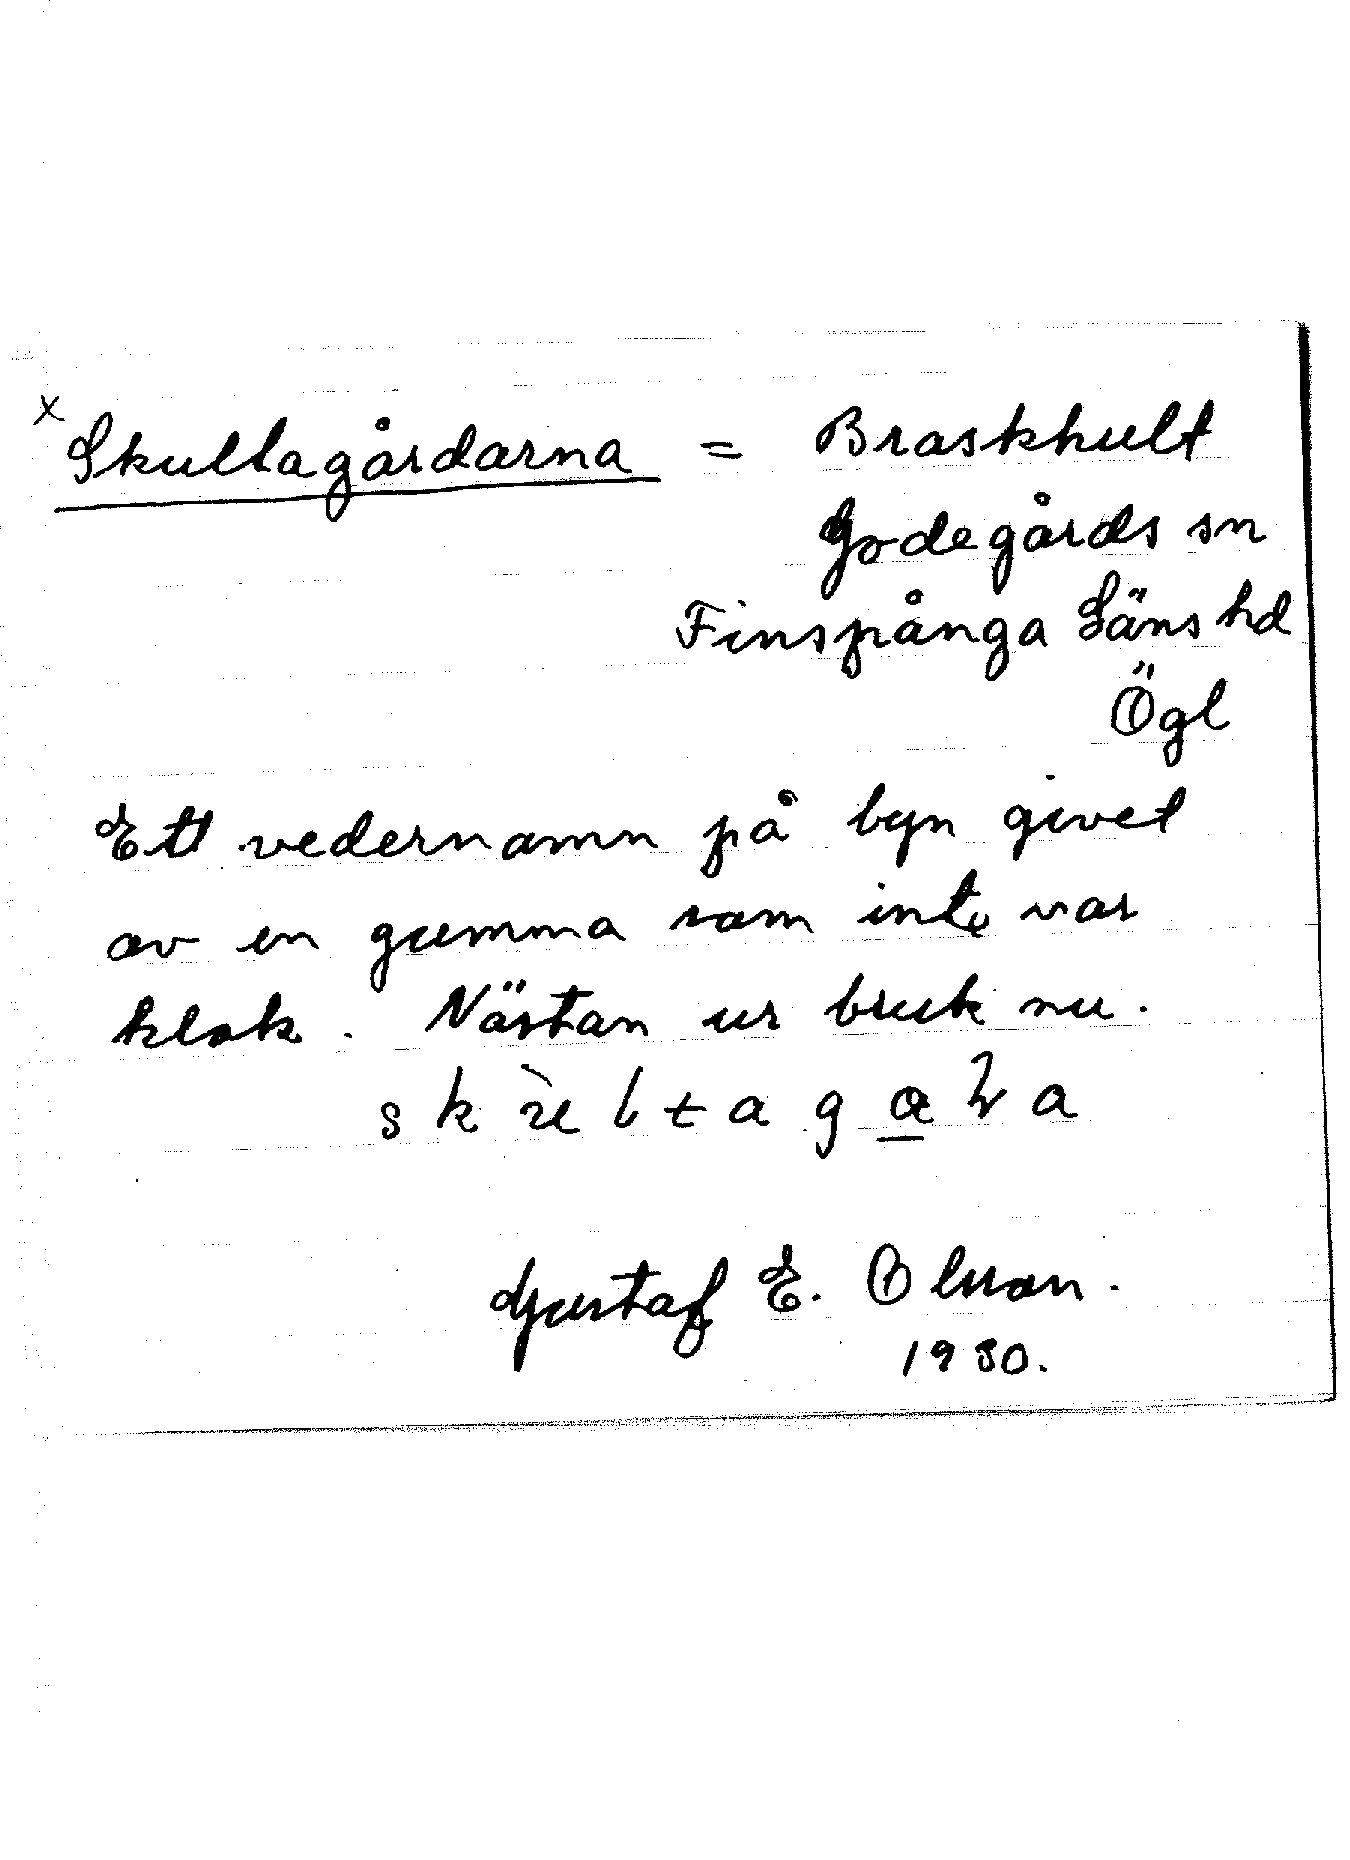 x Skultagårdarna = Braskhult
Godegårds sn
Finspånga Läns hd
Ögl
Ett vedernamn på byn givet
av en gumma som inte var
klok. Nästan ur bruk nu.
Gustaf E. Olsson.
1930.